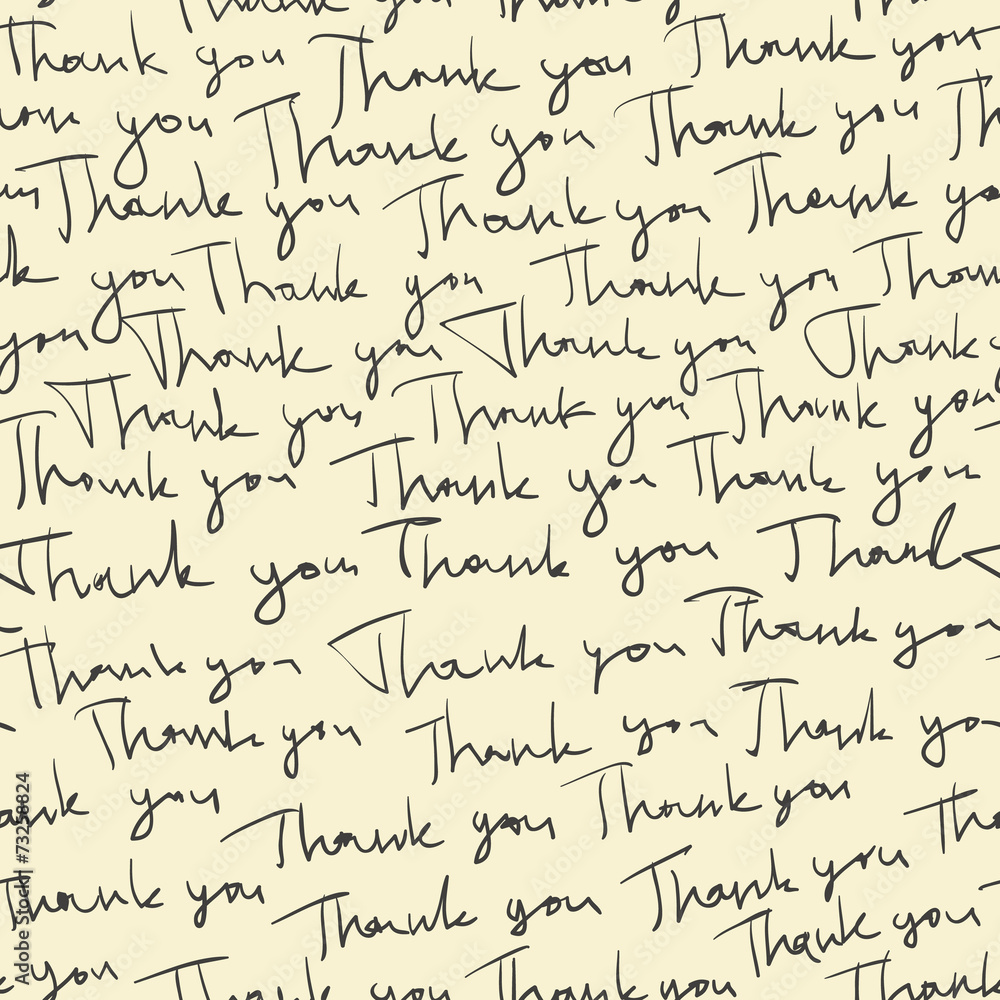 Thank you Thank
Thank you Thank you Thank you
you Thank you Thank you Th
Thank you Thank you Thank you
k you Thank you Thank you Thank
you Thank you Thank you Thank
Thank you Thank you Thank you
Thank you Thank you Thank you
Thank you Thank you Thank
Thank you Thank you Thank you
Thank you Thank you Thank yo
ank you Thank you Thank you Tha
Thank you Thank you Thank you
k you Thank you Thank you Thank you
Thank
Adobe Stock | #73258824